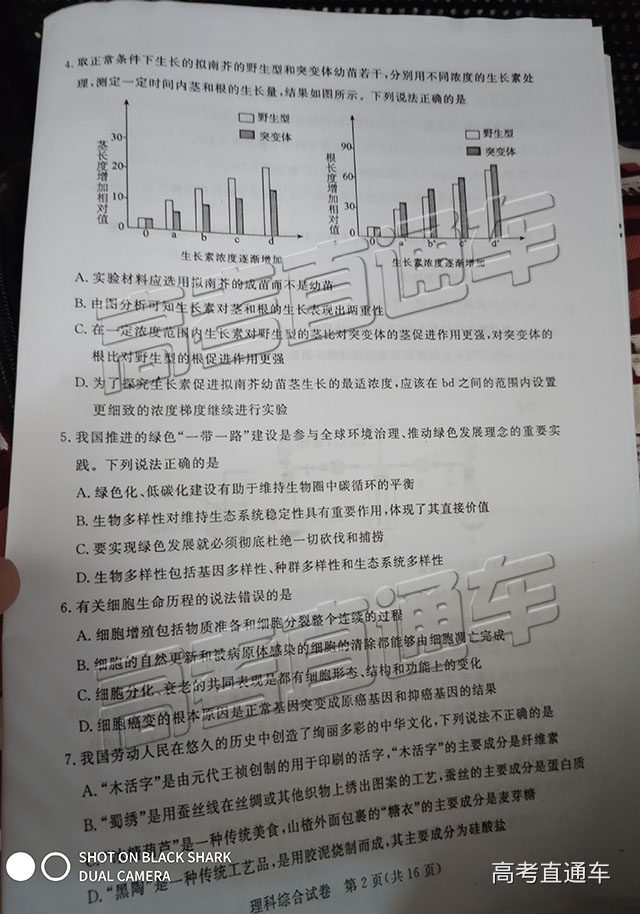 4. 取正常条件下生长的拟南芥的野生型和突变体幼苗若干,分别用不同浓度的生长素处
理,测定一定时间内茎和根的生长量,结果如图所示。下列说法正确的是
茎长度增加相对值
30
20
10
0
0 a b c d
生长素浓度逐渐增加
野生型
突变体
根长度增加相对值
90
60
30
0
0 a' b' c' d'
生长素浓度逐渐增加
野生型
突变体
A. 实验材料应选用拟南芥的成苗而不是幼苗
B. 由图分析可知生长素对茎和根的生长表现出两重性
C. 在一定浓度范围内生长素对野生型的茎比对突变体的茎促进作用更强,对突变体的
根比对野生型的根促进作用更强
D. 为了探究生长素促进拟南芥幼苗茎生长的最适浓度,应该在 bd 之间的范围内设置
更细致的浓度梯度继续进行实验
5. 我国推进的绿色“一带一路”建设是参与全球环境治理、推动绿色发展理念的重要实
践。下列说法正确的是
A. 绿色化、低碳化建设有助于维持生物圈中碳循环的平衡
B. 生物多样性对维持生态系统稳定性具有重要作用,体现了其直接价值
C. 要实现绿色发展就必须彻底杜绝一切砍伐和捕捞
D. 生物多样性包括基因多样性、种群多样性和生态系统多样性
6. 有关细胞生命历程的说法错误的是
A. 细胞增殖包括物质准备和细胞分裂整个连续的过程
B. 细胞的自然更新和被病原体感染的细胞的清除都能够由细胞凋亡完成
C. 细胞分化、衰老的共同表现是都有细胞形态、结构和功能上的变化
D. 细胞癌变的根本原因是正常基因突变成原癌基因和抑癌基因的结果
7. 我国劳动人民在悠久的历史中创造了绚丽多彩的中华文化,下列说法不正确的是
A. “木活字”是由元代王祯创制的用于印刷的活字,“木活字”的主要成分是纤维素
B. “蜀绣”是用蚕丝线在丝绸或其他织物上绣出图案的工艺,蚕丝的主要成分是蛋白质
糖葫芦”是一种传统美食,山楂外面包裹的“糖衣”的主要成分是麦芽糖
D. “黑陶”是一种传统工艺品,是用胶泥烧制而成,其主要成分为硅酸盐
理科综合试卷 第 2 页(共 16 页)
高考直通车
高考直通车
SHOT ON BLACK SHARK
DUAL CAMERA
高考直通车